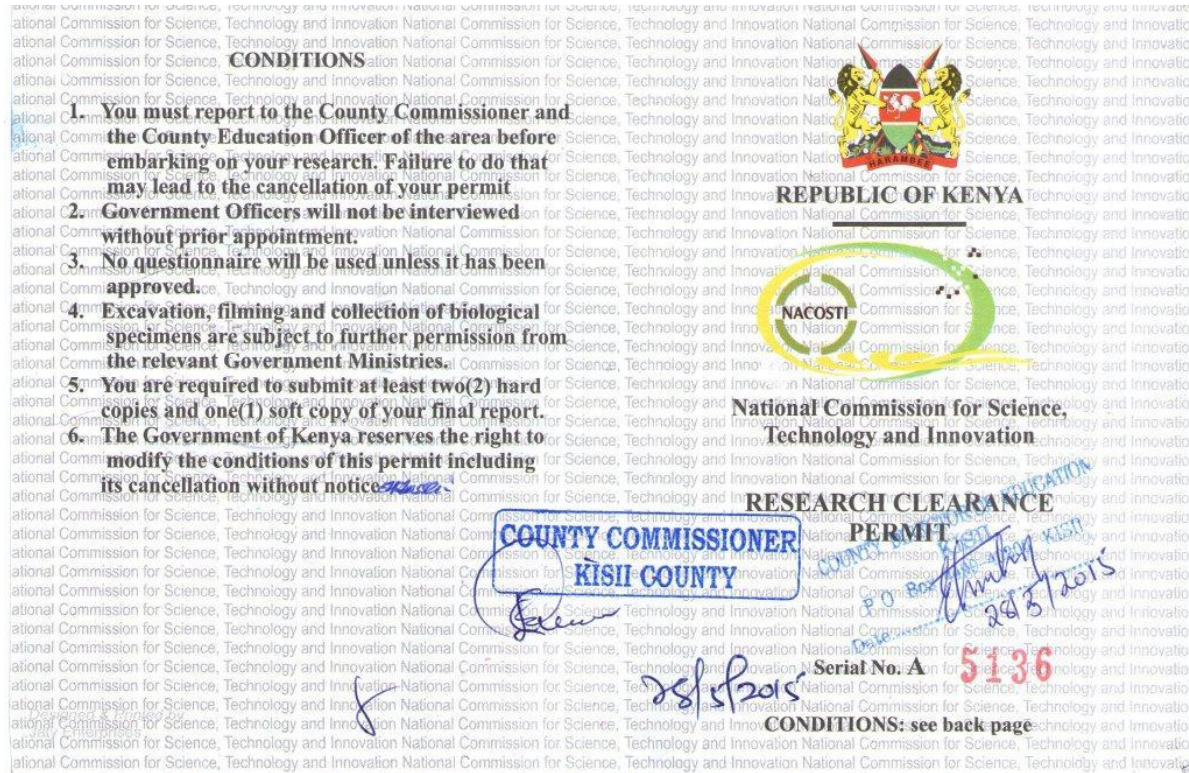 CONDITIONS
1. You must report to the County Commissioner and
the County Education Officer of the area before
embarking on your research. Failure to do that
may lead to the cancellation of your permit
2. Government Officers will not be interviewed
without prior appointment.
3. No questionnaire will be used unless it has been
approved.
4. Excavation, filming and collection of biological
specimens are subject to further permission from
the relevant Government Ministries.
5. You are required to submit at least two(2) hard
copies and one(1) soft copy of your final report.
6. The Government of Kenya reserves the right to
modify the conditions of this permit including
its cancellation without notice
COUNTY COMMISSIONER
KISII COUNTY
28/5/2015
HARAMBEE
REPUBLIC OF KENYA
NACOSTI
National Commission for Science,
Technology and Innovation
RESEARCH CLEARANCE
PERMIT
COUNTY EDUCATION
KISII
P O Box KISII
Date
28/5/2015
Serial No. A 5136
CONDITIONS: see back page